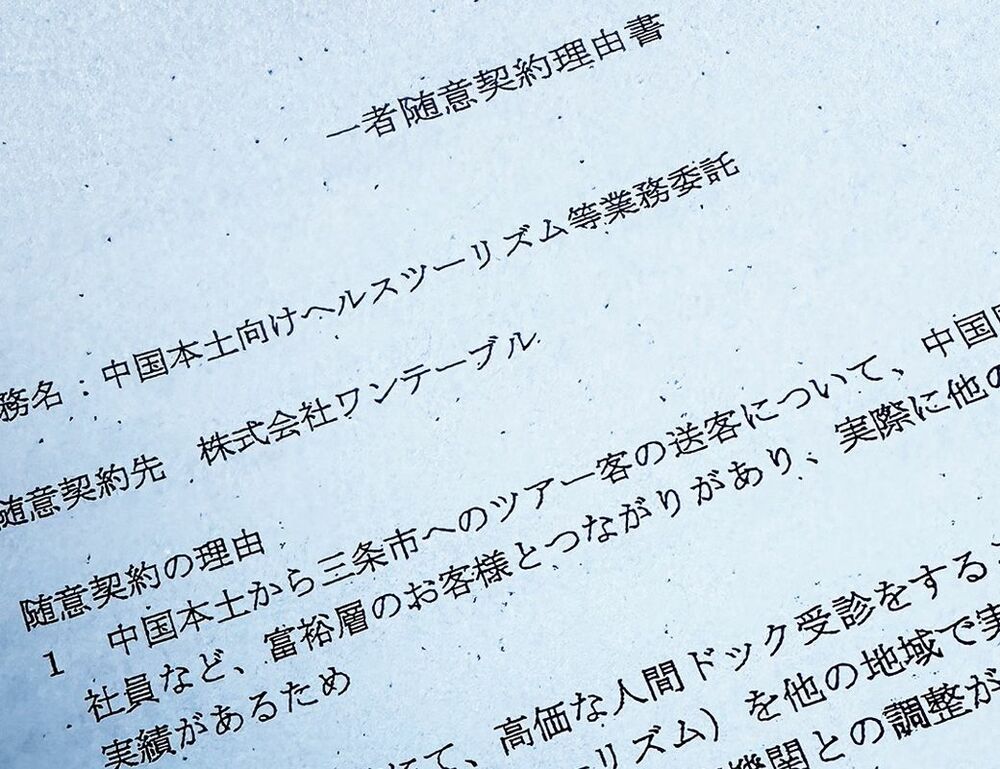 一者随意契約理由書
務名：中国本土向けヘルスツーリズム等業務委託
随意契約先　株式会社ワンテーブル
随意契約の理由
1　中国本土から三条市へのツアー客の送客について、中国
社員など、富裕層のお客様とつながりがあり、実際に他の
実績があるため
にて、高価な人間ドック受診をする
リズム）を他の地域で実
機関との調整が